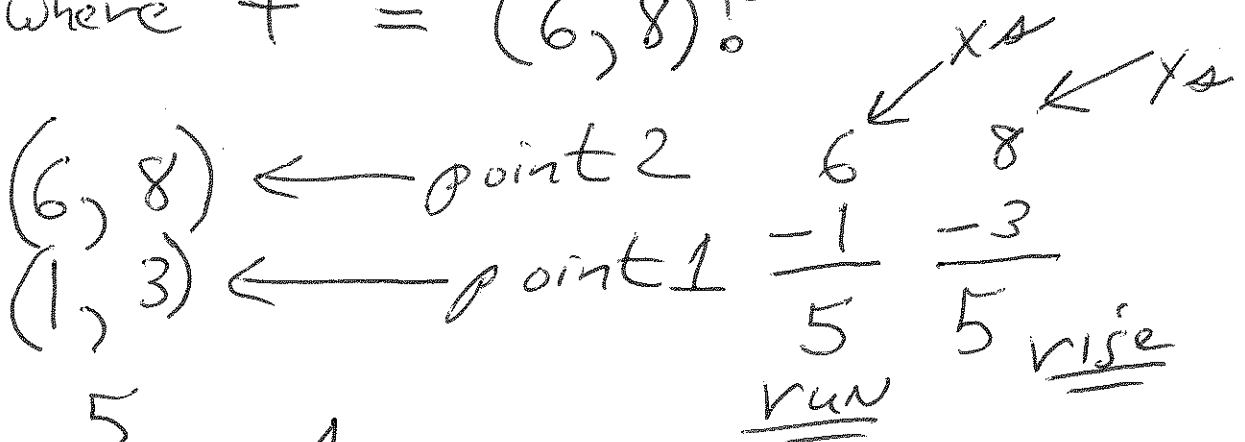 where t = (6,8)?
xs
ys
(6, 8) ← point 2 6 8
(1, 3) ← point 1 -1 -3
5 5 rise
5 run